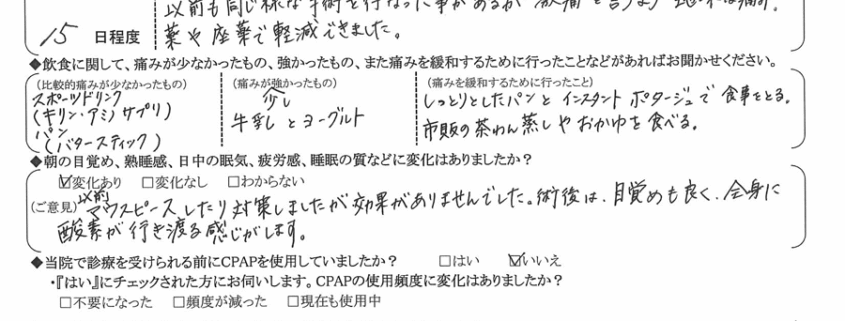 以前も同じ様な手術を行なった事があるが
15 日程度 薬や座薬で軽減できました。
◆飲食に関して、痛みが少なかったもの、強かったもの、また痛みを緩和するために行ったことなどがあればお聞かせください。
(比較的痛みが少なかったもの) (痛みが強かったもの) (痛みを緩和するために行ったこと)
スポーツドリンク
(キリン・アミノサプリ)
パン
(バタースティック)
少し
牛乳とヨーグルト
しっとりとしたパンとインスタントポタージュで食事をとる。
市販の茶わん蒸しやおかゆを食べる。
◆朝の目覚め、熟睡感、日中の眠気、疲労感、睡眠の質などに変化はありましたか?
☑変化あり □変化なし □わからない
以前
(ご意見) マウスピースしたり対策しましたが効果がありませんでした。術後は、目覚めも良く、全身に
酸素が行き渡る感じがします。
◆当院で診療を受けられる前にCPAPを使用していましたか? □はい ☑いいえ
・『はい』にチェックされた方にお伺いします。CPAPの使用頻度に変化はありましたか?
□不要になった □頻度が減った □現在も使用中